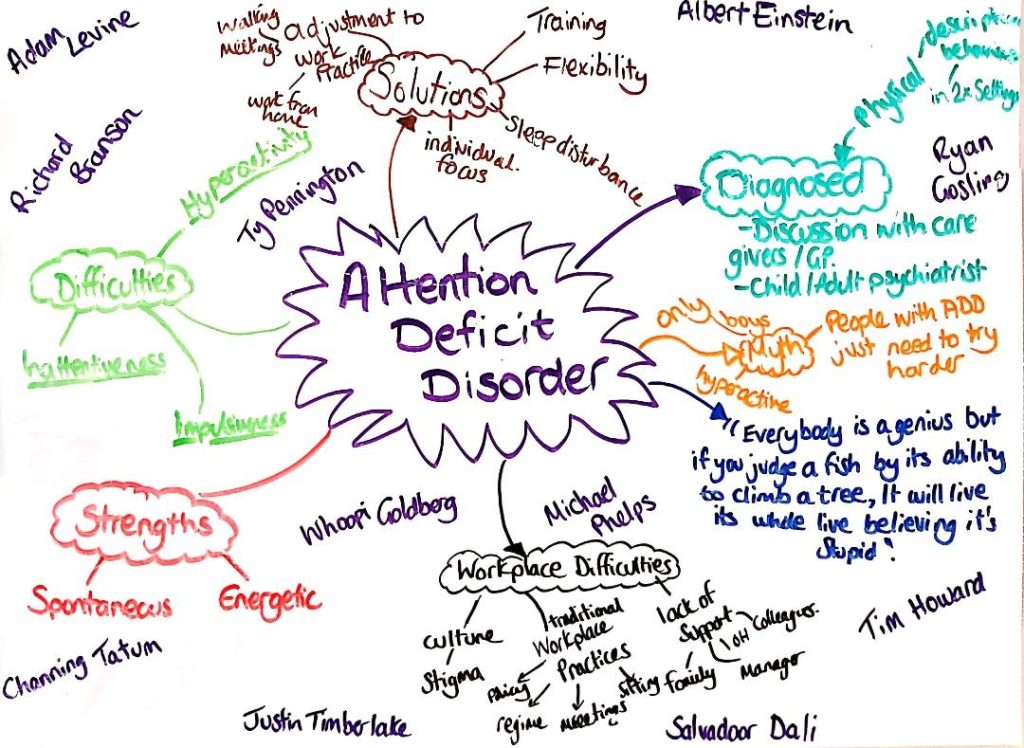 Adam Levine
Richard Branson
walking meetings
adjustment to
work Practice
work from home
Solutions
Training
Flexibility
Sleep disturbance
individual focus
Albert Einstein
Physical
description
behaviours
in 2x Settings
Diagnosed
- Discussion with care
givers / GP.
- Child / Adult psychiatrist
Ryan Gosling
Hyperactivity
Ty Pennington
Difficulties
Inattentiveness
Impulsiveness
Attention
Deficit
Disorder
only boys
Myth
hyperactive
People with ADD
just need to try
harder
"Everybody is a genius but
if you judge a fish by its ability
to climb a tree, It will live
its whole live believing it's
stupid"
Strengths
Spontaneous
Energetic
Whoopi Goldberg
Michael Phelps
Workplace Difficulties
culture
Stigma
traditional
Workplace
Practices
policy
regime
meetings
sitting
lack of
Support
OH
Colleagues.
family
Manager
Tim Howard
Channing Tatum
Justin Timberlake
Salvadoor Dali